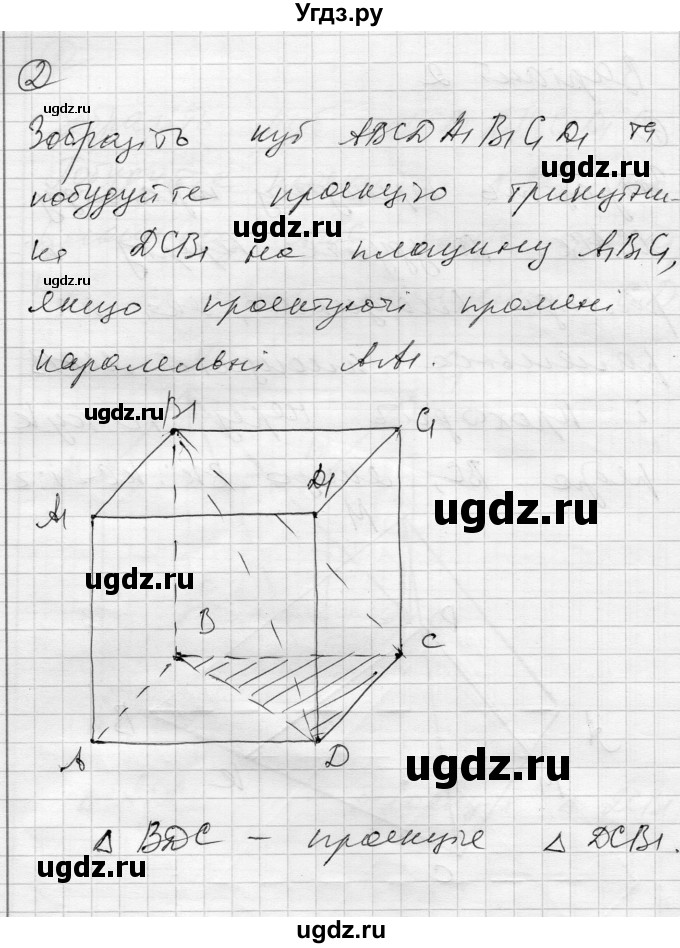 Угдз.ру
②
ugdz.ru
Зобразіть куб ABCDA₁B₁C₁D₁ та
ugdz.ru
побудуйте проекцію трикутни-
ugdz.ru
ка DCB₁ на площину A₁B₁C₁,
ugdz.ru
якщо проектуючі промені
паралельні AA₁.
ugdz.ru
B₁ C₁
D₁
A₁
ugdz.ru
ugdz.ru
B
C
A D
ugdz.ru
Δ BDC – проекція Δ DCB₁.
ugdz.ru
ugdz.ru